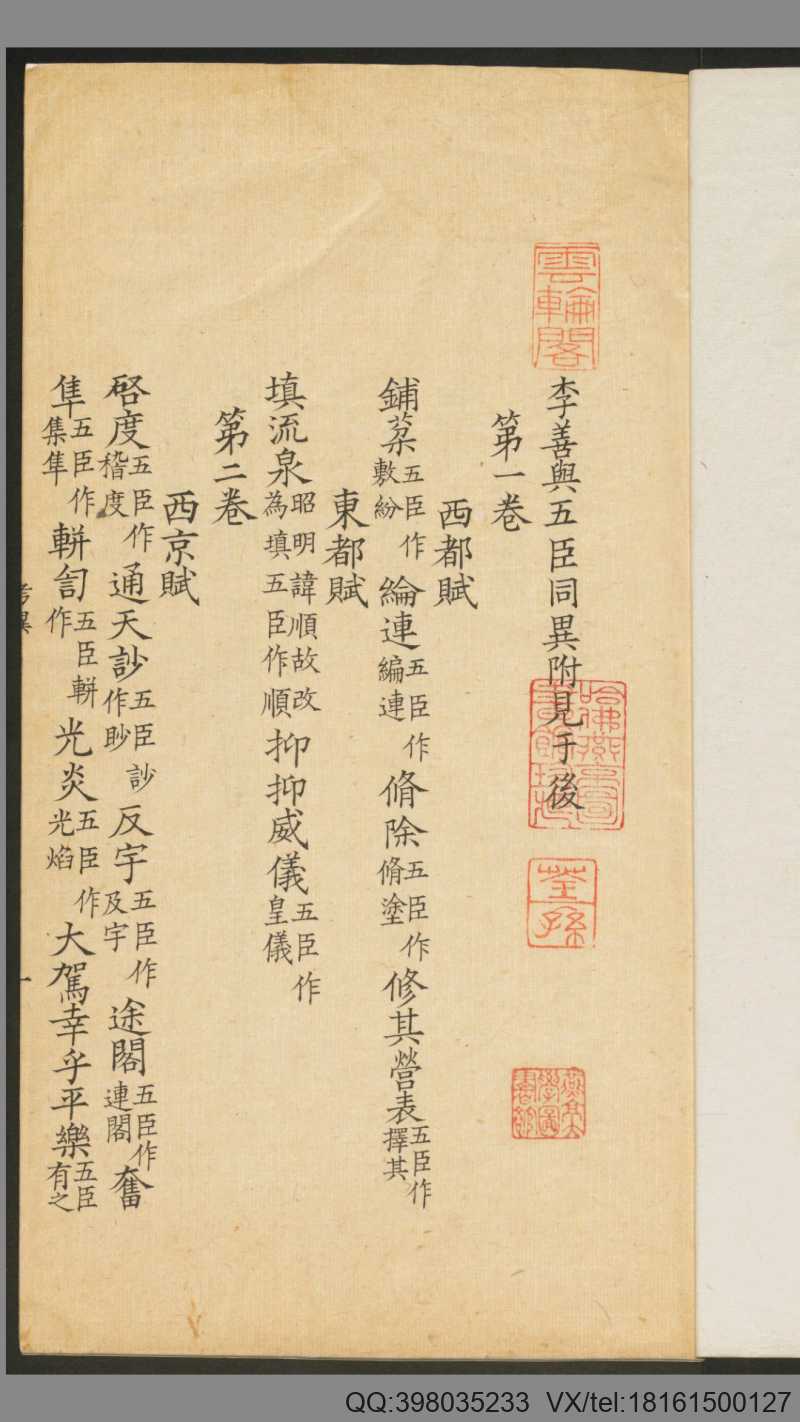 李善與五臣同異附見于後
第一卷
西都賦
鋪棻五臣作敷紛 綸連五臣作編連 脩除五臣作脩塗 修其營表五臣作擇其
東都賦
填流泉昭明諱順故改為填五臣作順 抑抑威儀五臣作皇儀
第二卷
西京賦
啓度五臣作稽度 通天訬五臣訬作眇 反宇五臣作及宇 途閣五臣作連閣 奮
隼五臣作集隼 軿訇五臣軿作 光炎五臣作光焰 大駕幸乎平樂五臣有之
考異
一
雲輪閣
荃孫
QQ:398035233 VX/tel:18161500127